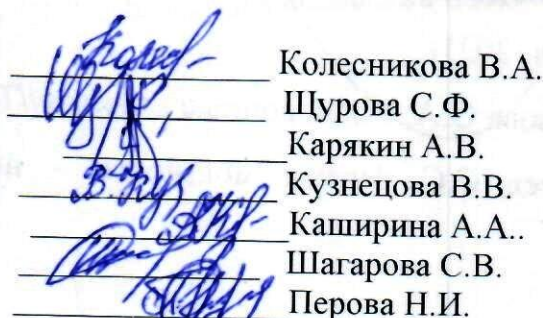 Колесникова В.А.
Щурова С.Ф.
Карякин А.В.
В.Куз Кузнецова В.В.
Каширина А.А..
Шагарова С.В.
Перова Н.И.